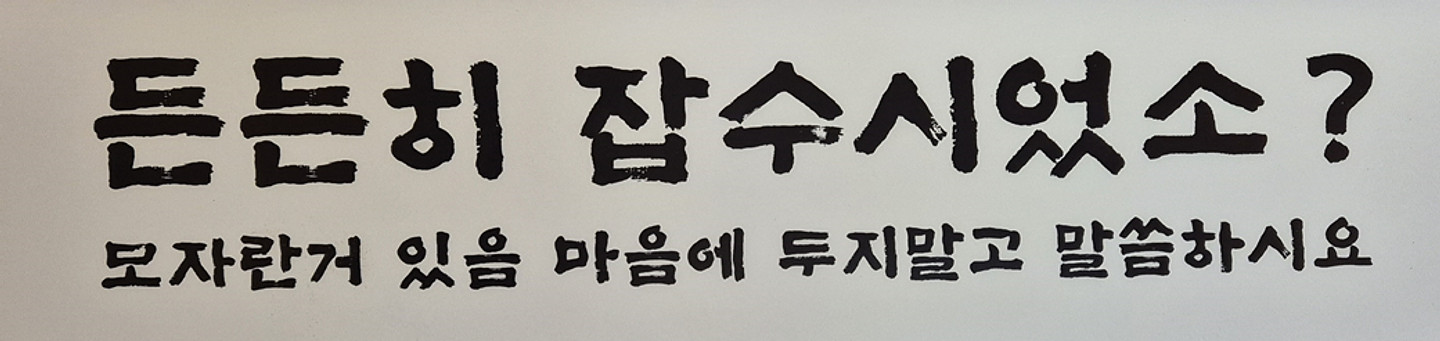 든든히 잡수시었소?
모자란거 있음 마음에 두지말고 말씀하시요